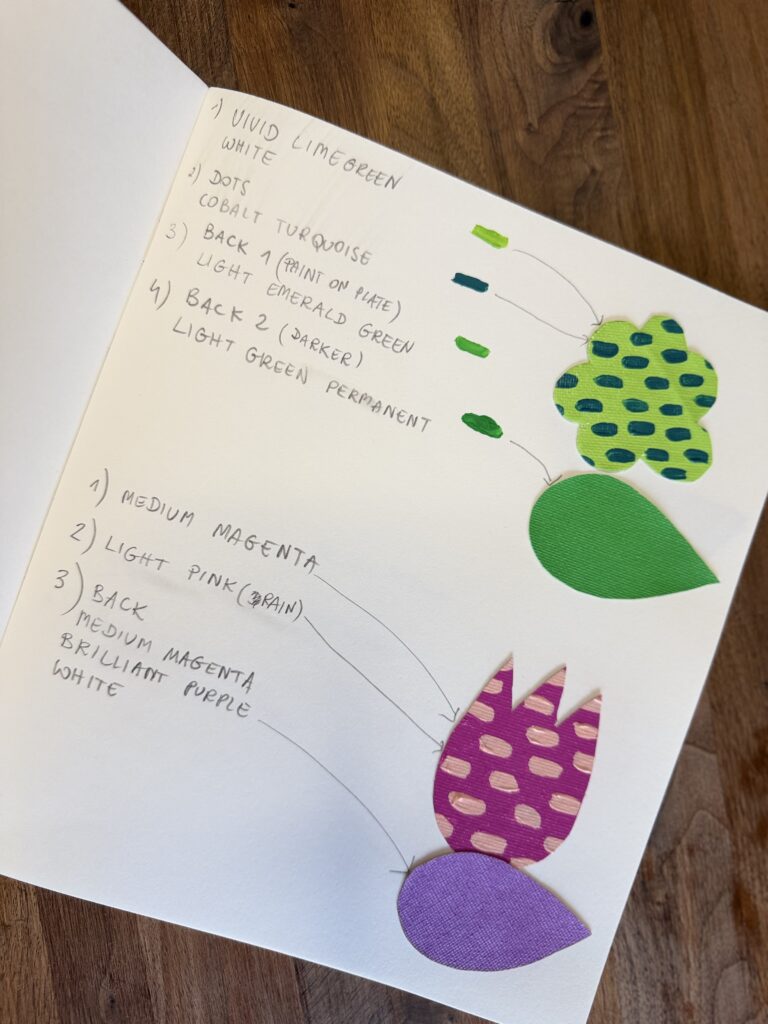 1) VIVID LIMEGREEN
WHITE
2) DOTS
COBALT TURQUOISE
3) BACK 1 (PAINT ON PLATE)
LIGHT EMERALD GREEN
4) BACK 2 (DARKER)
LIGHT GREEN PERMANENT
1) MEDIUM MAGENTA
2) LIGHT PINK (BRAIN)
3) BACK
MEDIUM MAGENTA
BRILLIANT PURPLE
WHITE